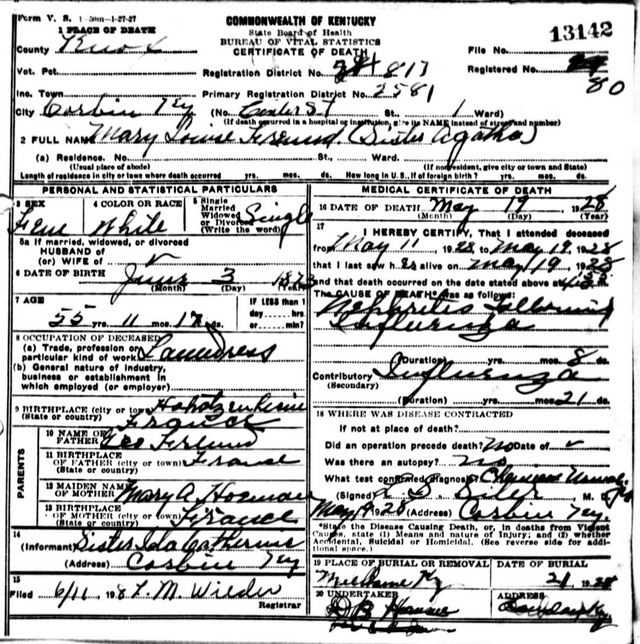 Form V. S. 1-50m-1-27-27
COMMONWEALTH OF KENTUCKY
State Board of Health
BUREAU OF VITAL STATISTICS
CERTIFICATE OF DEATH
13142
1 PLACE OF DEATH
County Knox
File No.
Vot. Pct. Registration District No. 817
Registered No. 80
Inc. Town Primary Registration District No. 2581
City Corbin Ky (No. Center St St., 1 Ward)
(If death occurred in a hospital or institution, give its NAME instead of street and number)
2 FULL NAME Mary Louise Freund (Sister Agatha)
(a) Residence. No. St., Ward.
(Usual place of abode) (If nonresident, give city or town and State)
Length of residence in city or town where death occurred yrs. mos. ds. How long in U. S., if of foreign birth? yrs. mos. ds.
PERSONAL AND STATISTICAL PARTICULARS
3 SEX Fem
4 COLOR OR RACE White
5 Single Married Widowed or Divorced (Write the word) Single
5a If married, widowed, or divorced
HUSBAND of
(or) WIFE of
6 DATE OF BIRTH June 3 1873
(Month) (Day)
7 AGE
55 yrs. 11 mos. 17 ds.
IF LESS than 1 day hrs. or min.
8 OCCUPATION OF DECEASED
(a) Trade, profession or particular kind of work Laundress
(b) General nature of industry, business or establishment in which employed (or employer)
9 BIRTHPLACE (city or town)
(State or country) France
PARENTS
10 NAME OF FATHER Geo Freund
11 BIRTHPLACE OF FATHER (city or town) France
(State or country)
12 MAIDEN NAME OF MOTHER Mary A
13 BIRTHPLACE OF MOTHER (city or town) France
(State or country)
14 (Informant) Sister Ida Catherine
(Address) Corbin Ky
15 Filed 6/11 1928 L. M. Wilder
Registrar
MEDICAL CERTIFICATE OF DEATH
16 DATE OF DEATH May 19 1928
(Month) (Day) (Year)
17 I HEREBY CERTIFY, That I attended deceased
from May 11 1928 to May 19 1928
that I last saw h er alive on May 19 1928
and that death occurred on the date stated above at
The CAUSE OF DEATH* was as follows:
Nephritis following
Influenza
(Duration) yrs. mos. 8 ds.
Contributory Influenza
(Secondary)
(Duration) yrs. mos. 21 ds.
18 WHERE WAS DISEASE CONTRACTED
If not at place of death?
Did an operation precede death? No Date of
Was there an autopsy? No
What test confirmed diagnosis?
(Signed) M. D.
May 1928 (Address) Corbin Ky.
*State the Disease Causing Death, or, in deaths from Violent Causes, state (1) Means and nature of Injury; and (2) whether Accidental, Suicidal or Homicidal. (See reverse side for additional space.)
19 PLACE OF BURIAL OR REMOVAL DATE OF BURIAL
Ky 21 1928
20 UNDERTAKER ADDRESS